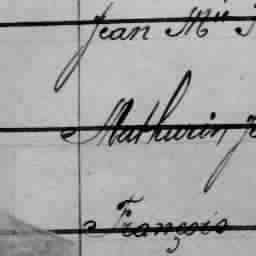 Jean Mie
Mathurin
François